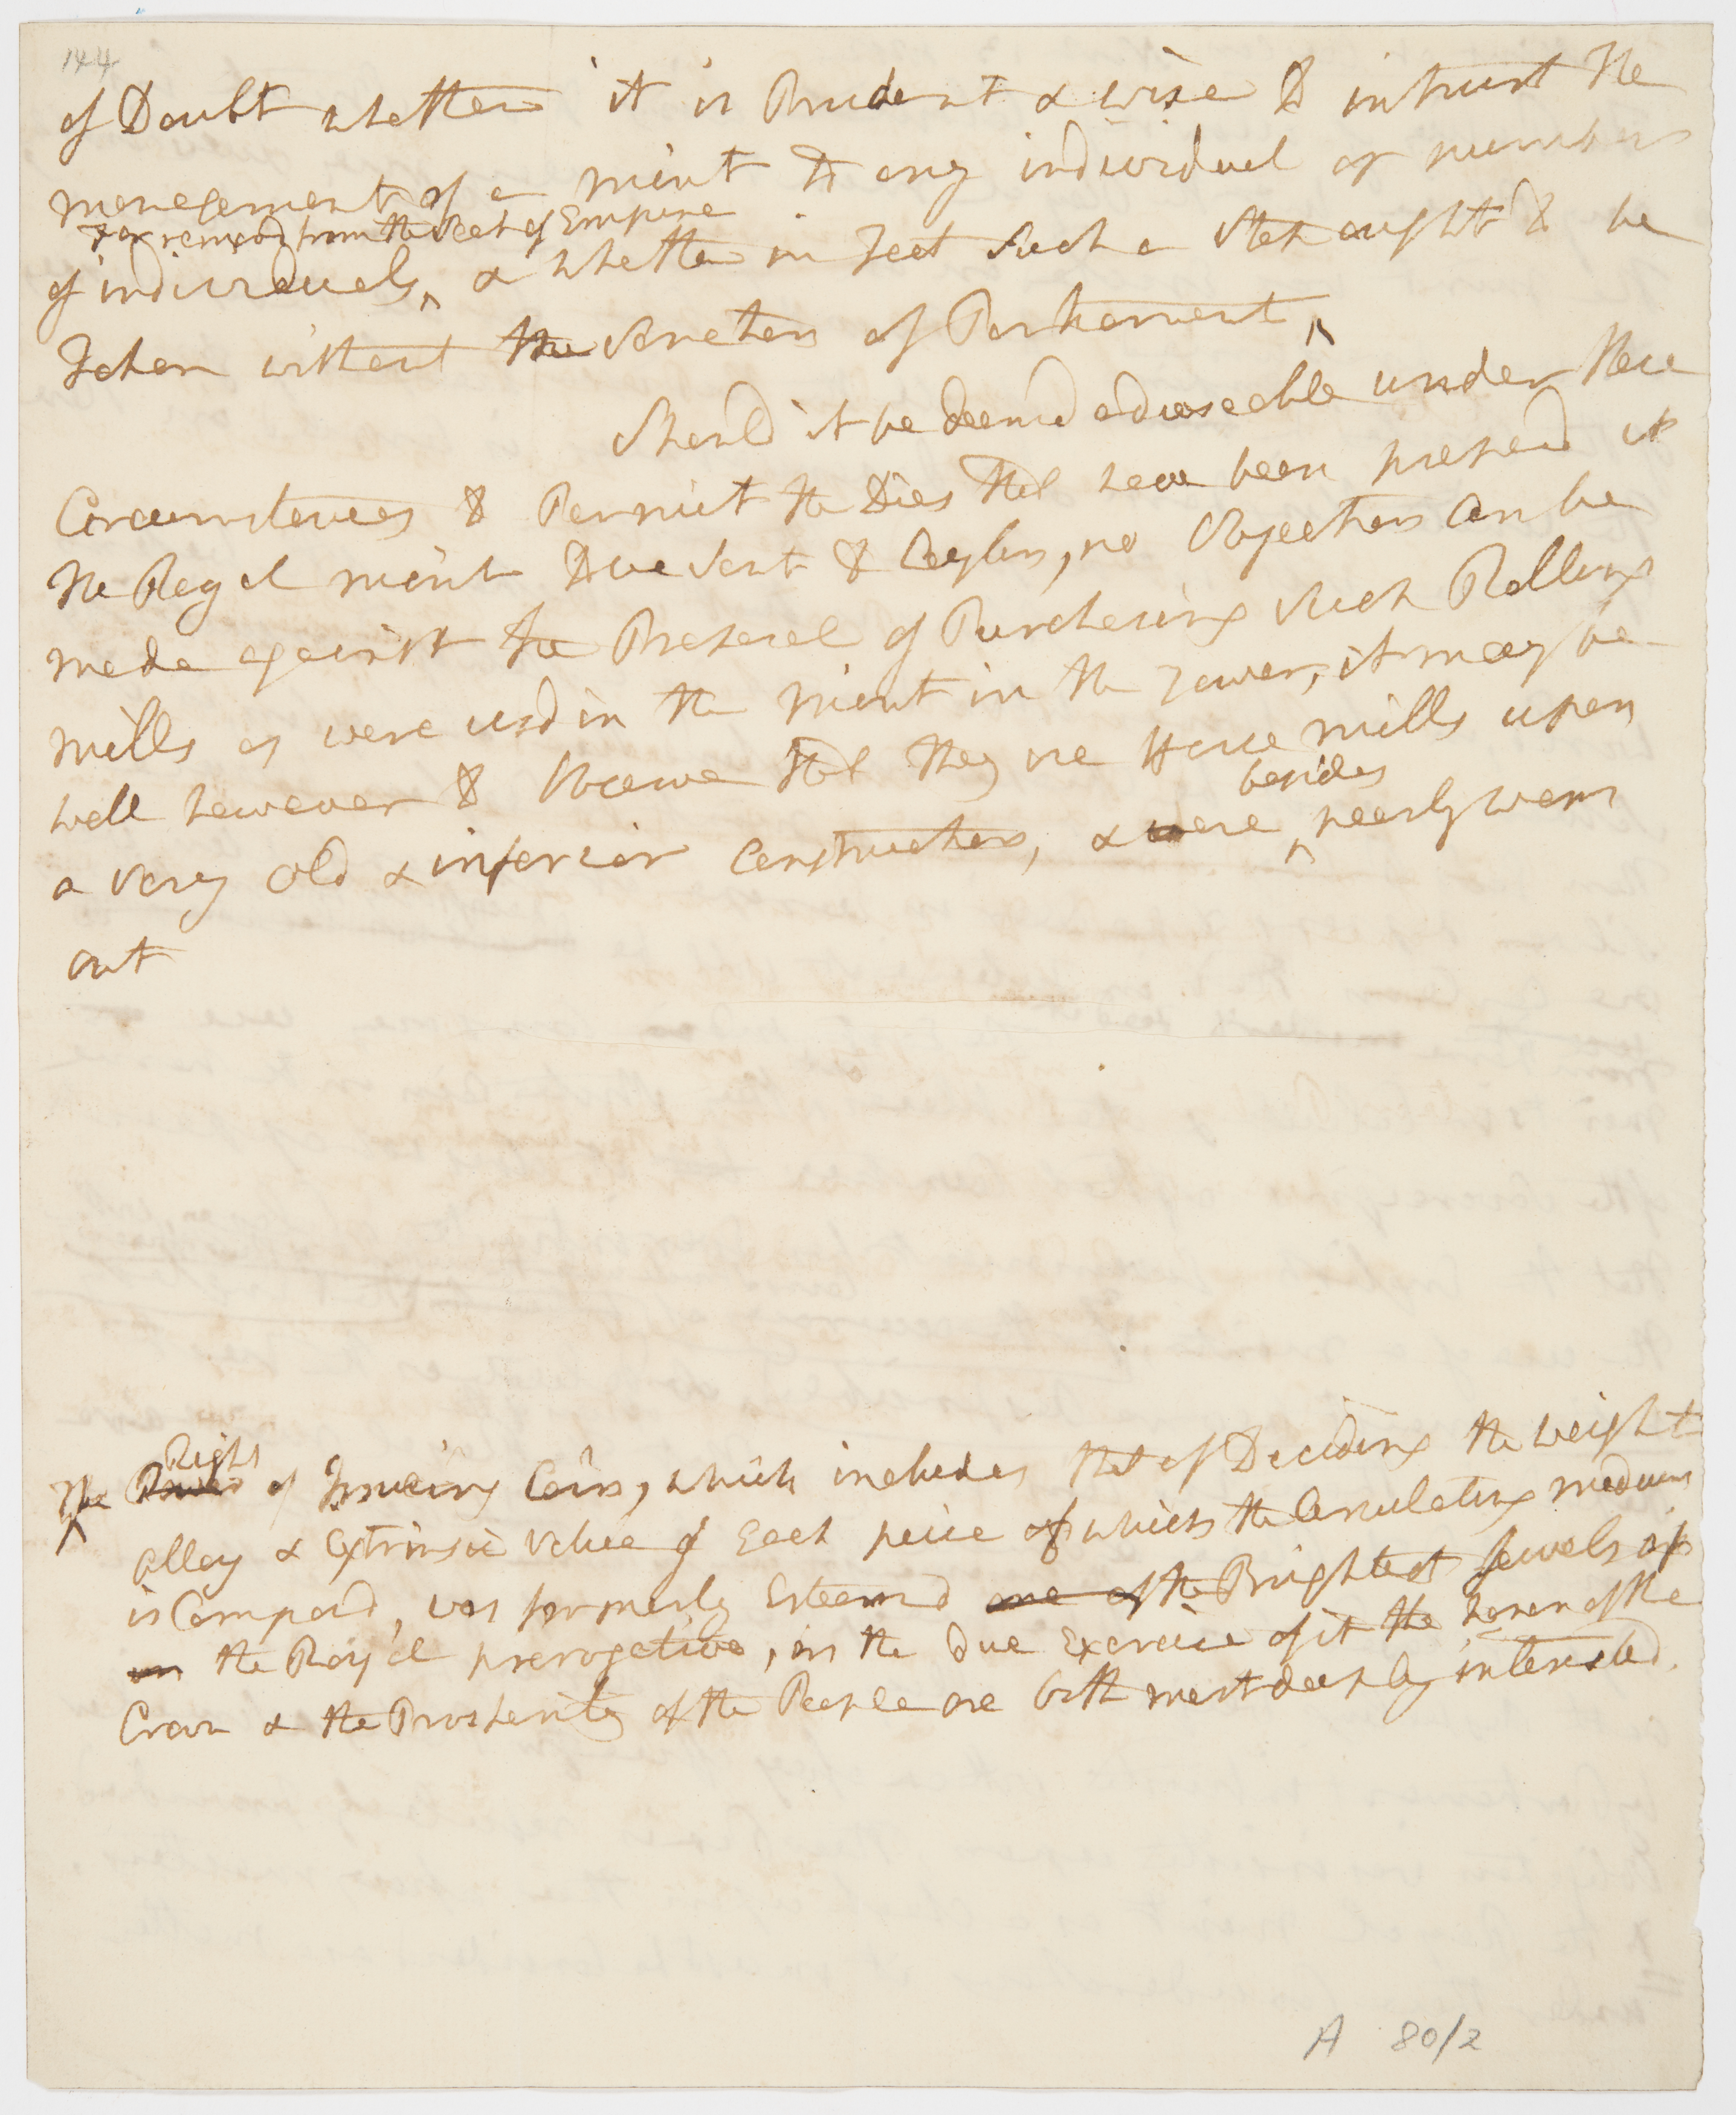 144
of Doubt whether it is Prudent & wise to intrust the
management of a mint to any individual or numbers
Far removd from the Seat of Empire
of individuals ^ & whether in Fact Such a Step ought to be
Taken without the Sanction of Parliament ^
Should it be deemd adviseable under these
Circumstances to Permit the Dies that have been prepard at
the Royal mint to be sent to Ceylon, no Objection Can be
made against the Proposal of Purchasing Such Rolling
mills as were usd in the mint in the Tower, it may be
well however to Observe that they are Horse mills upon
besides
a very old & inferior Construction, & were ^ nearly worn
out
Right
The Power of Issueing Coin, which includes that of Deciding the weight
^
alloy & extrinsic value of Each peice of which the Circulating medium
is Composd, was formerly Esteemd one of the Brightest Jewels of
in the Royal prerogative, in the Due Exercise of it the honor of the
Crown & the Prosperity of the People are both most deeply interested.
A 80/2